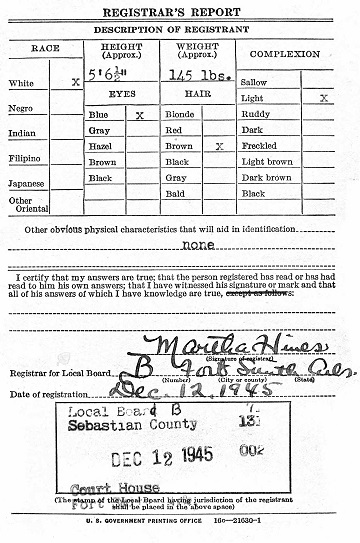 REGISTRAR'S REPORT
DESCRIPTION OF REGISTRANT
RACE
HEIGHT (Approx.)
WEIGHT (Approx.)
COMPLEXION
5'6½"
145 lbs.
White X
Negro
Indian
Filipino
Japanese
Other Oriental
EYES
Blue X
Gray
Hazel
Brown
Black
HAIR
Blonde
Red
Brown X
Black
Gray
Bald
Sallow
Light X
Ruddy
Dark
Freckled
Light brown
Dark brown
Black
Other obvious physical characteristics that will aid in identification
none
I certify that my answers are true; that the person registered has read or has had
read to him his own answers; that I have witnessed his signature or mark and that
all of his answers of which I have knowledge are true, except as follows:
Martha Hines
(Signature of registrar)
Registrar for Local Board B Fort Smith Ark.
(Number) (City or county) (State)
Date of registration Dec. 12, 1945
Local Board B 7
Sebastian County 131
DEC 12 1945 002
Court House
(The stamp of the Local Board having jurisdiction of the registrant
shall be placed in the above space)
U. S. GOVERNMENT PRINTING OFFICE 16c—21630-1